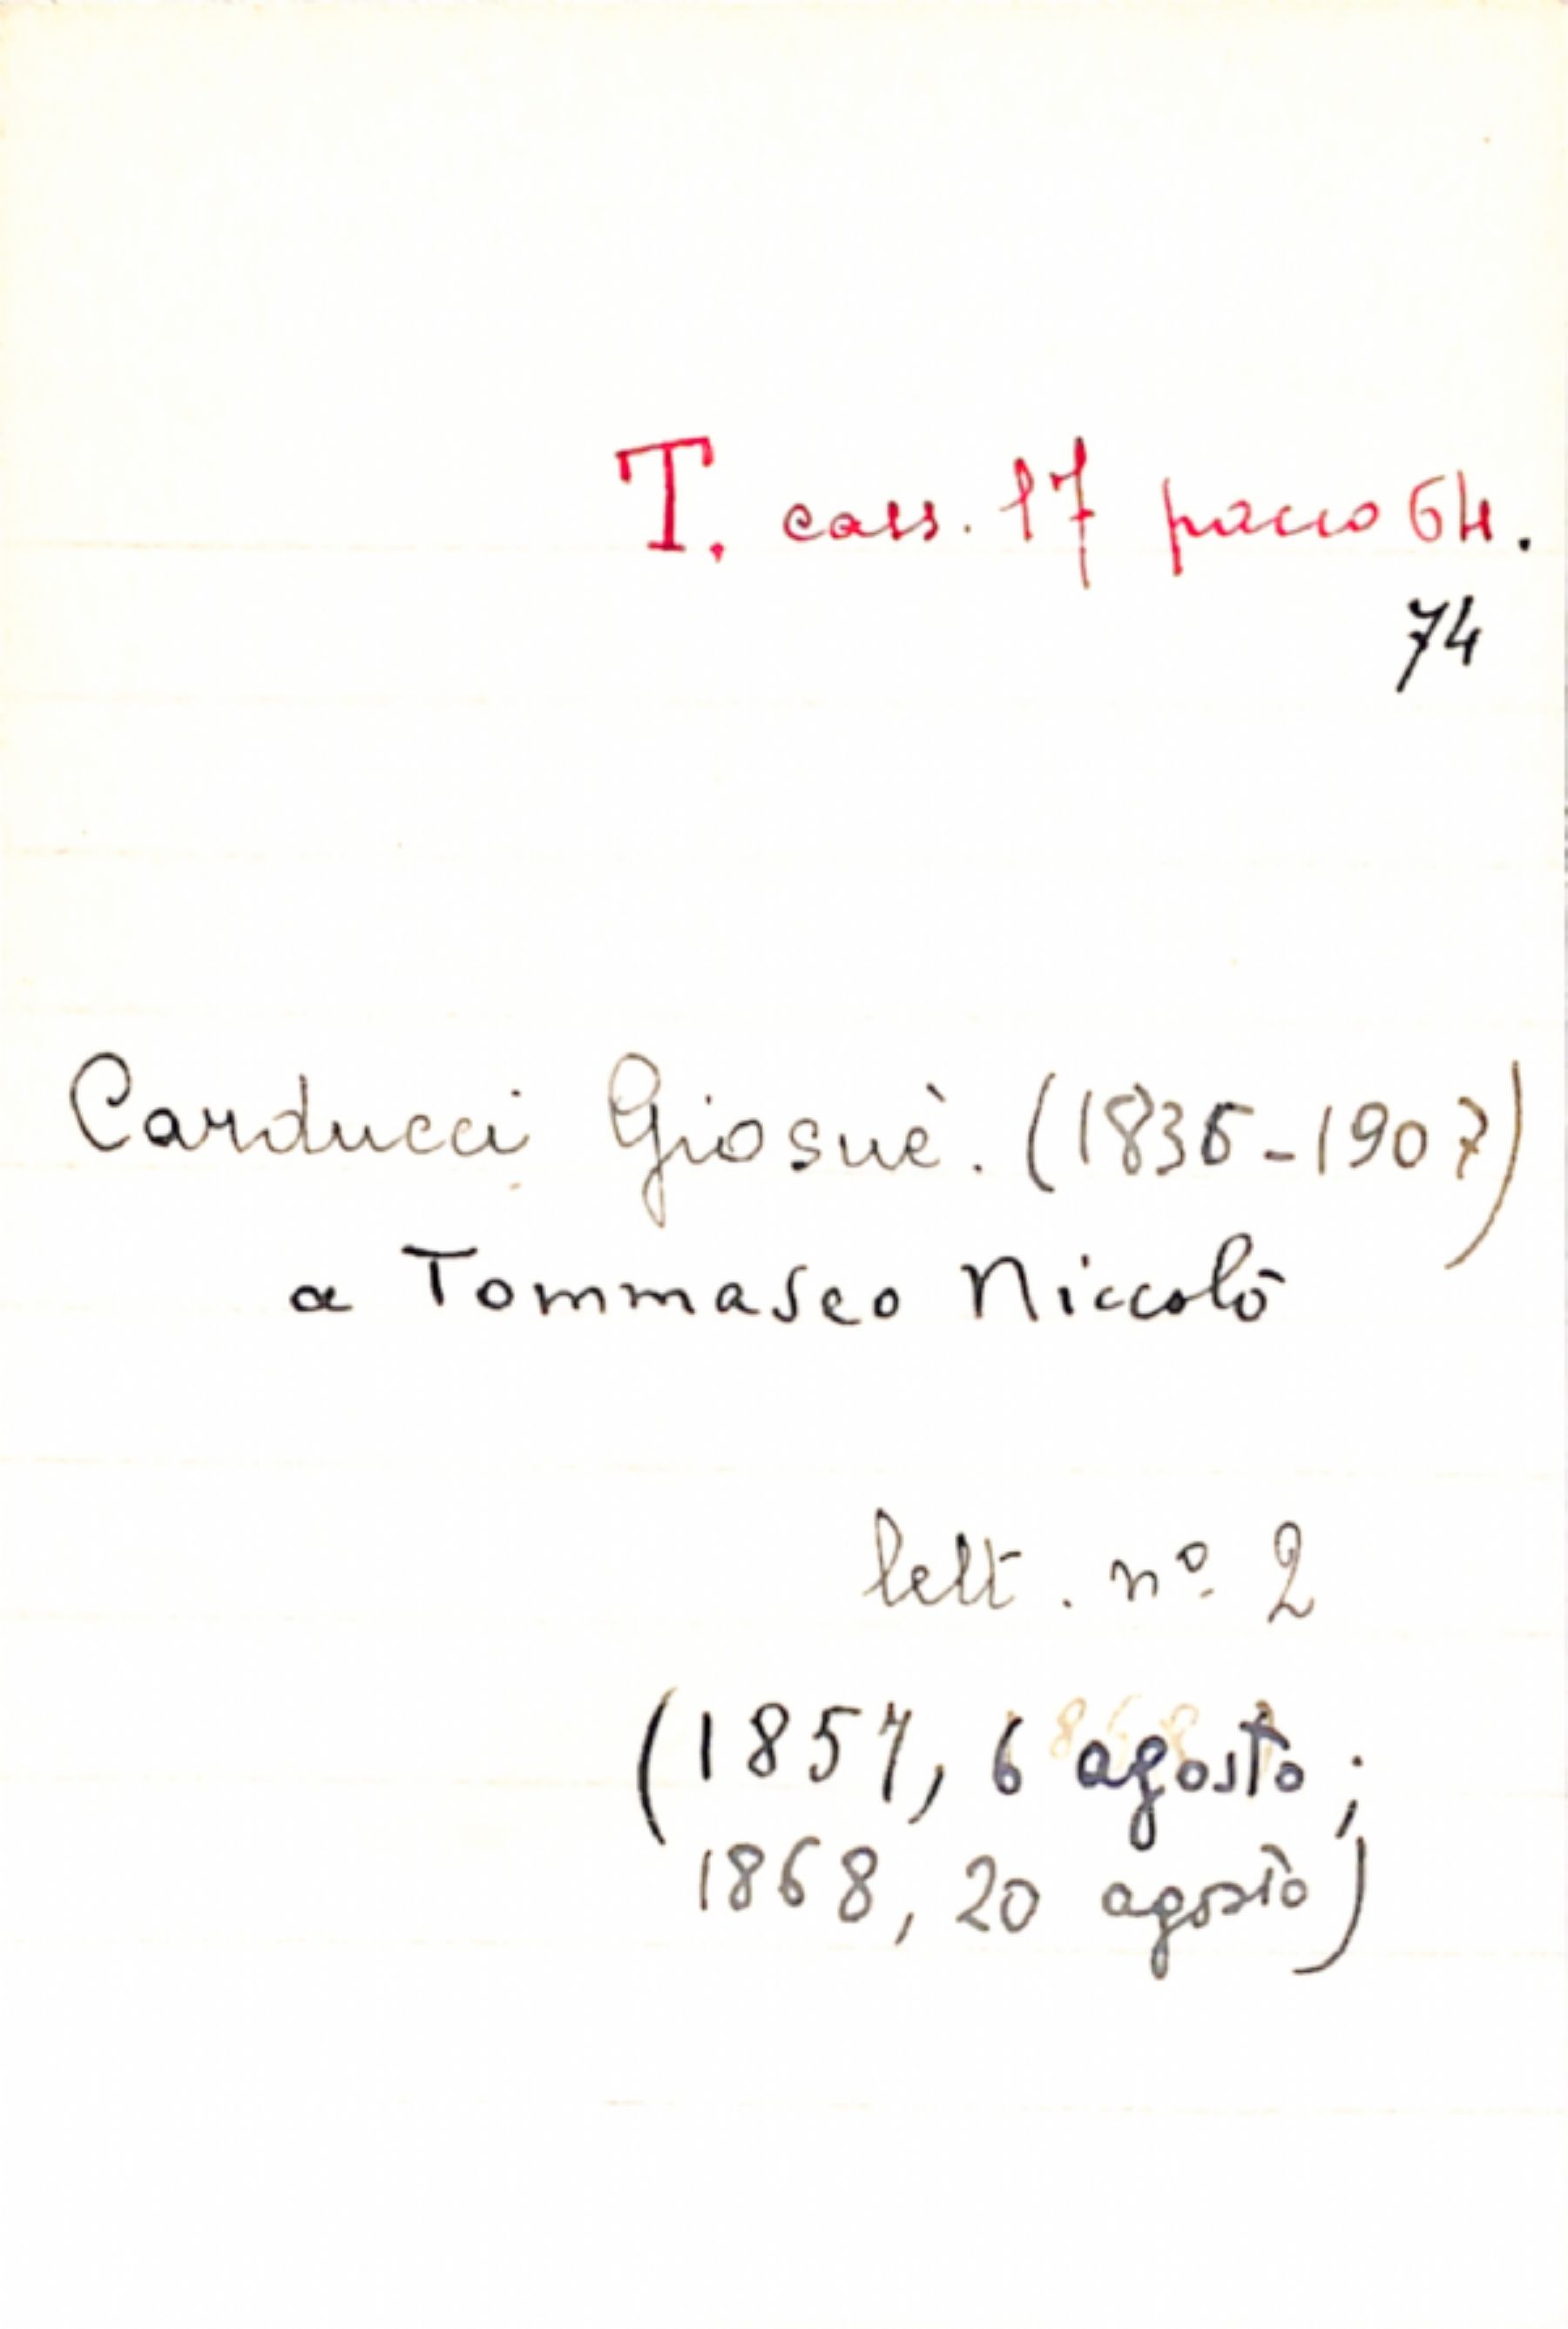 T. cass. 17 pacco 64.
74
Carducci Giosuè. (1835-1907)
a Tommaseo Niccolò
lett. nº 2
(1857, 6 agosto;
1868, 20 agosto)